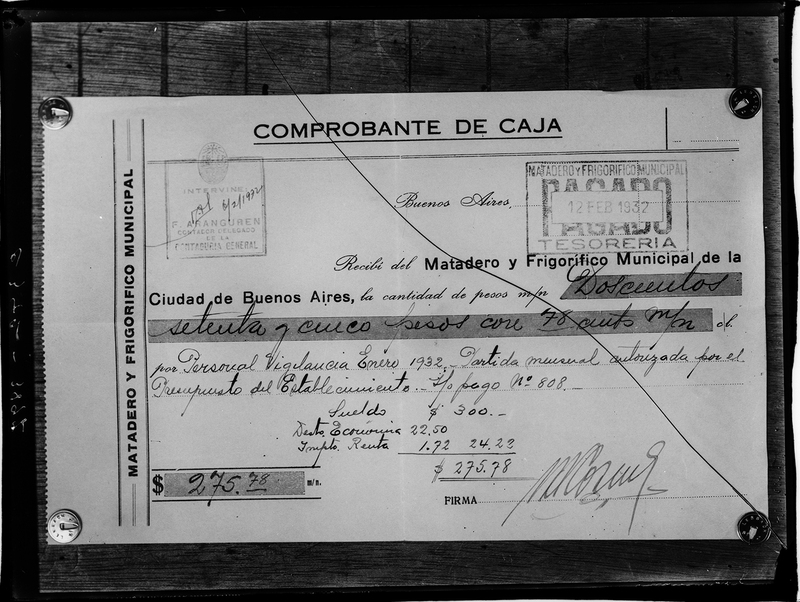 COMPROBANTE DE CAJA
MATADERO Y FRIGORIFICO MUNICIPAL
INTERVINE
6/2/1932
F. ARANGUREN
CONTADOR DELEGADO
DE LA
CONTADURIA GENERAL
MATADERO Y FRIGORIFICO MUNICIPAL
PAGADO
12 FEB 1932
PAGADO
TESORERIA
Buenos Aires,
Recibí del Matadero y Frigorífico Municipal de la
Ciudad de Buenos Aires, la cantidad de pesos m/n Doscientos
setenta y cinco pesos con 78 cents m/n
por Personal Vigilancia Enero 1932. Partida mensual autorizada por el
Presupuesto del Establecimiento. S/o pago Nº 808.—
Sueldo $ 300.—
Desto. Economía 22.50
Impto. Renta 1.72 24.22
$ 275.78
$ 275.78 m/n.
FIRMA